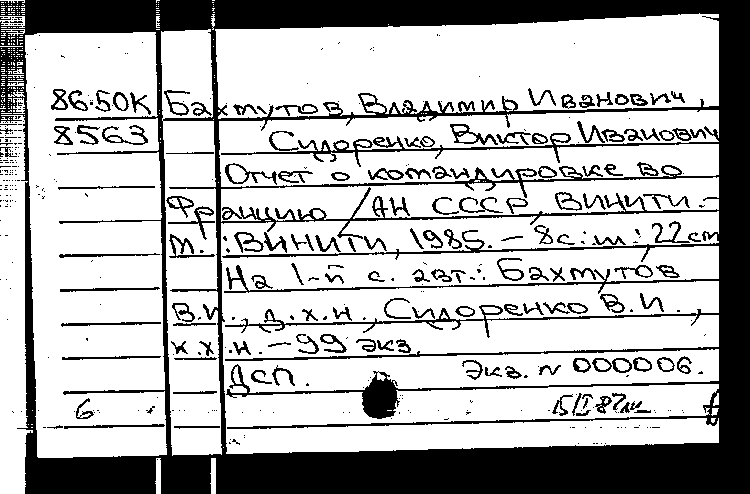 86.50К Бахмутов, Владимир Иванович,
8563 Сидоренко, Виктор Иванович
Отчет о командировке во
Францию / АН СССР, ВИНИТИ. –
М.: ВИНИТИ, 1985. – 8 с.: ш.; 22 cm
На 1-й с. авт.: Бахмутов
В.И., д.х.н., Сидоренко В.И.,
к.х.н. – 99 экз.
ДСП. Экз. N 000006.
6